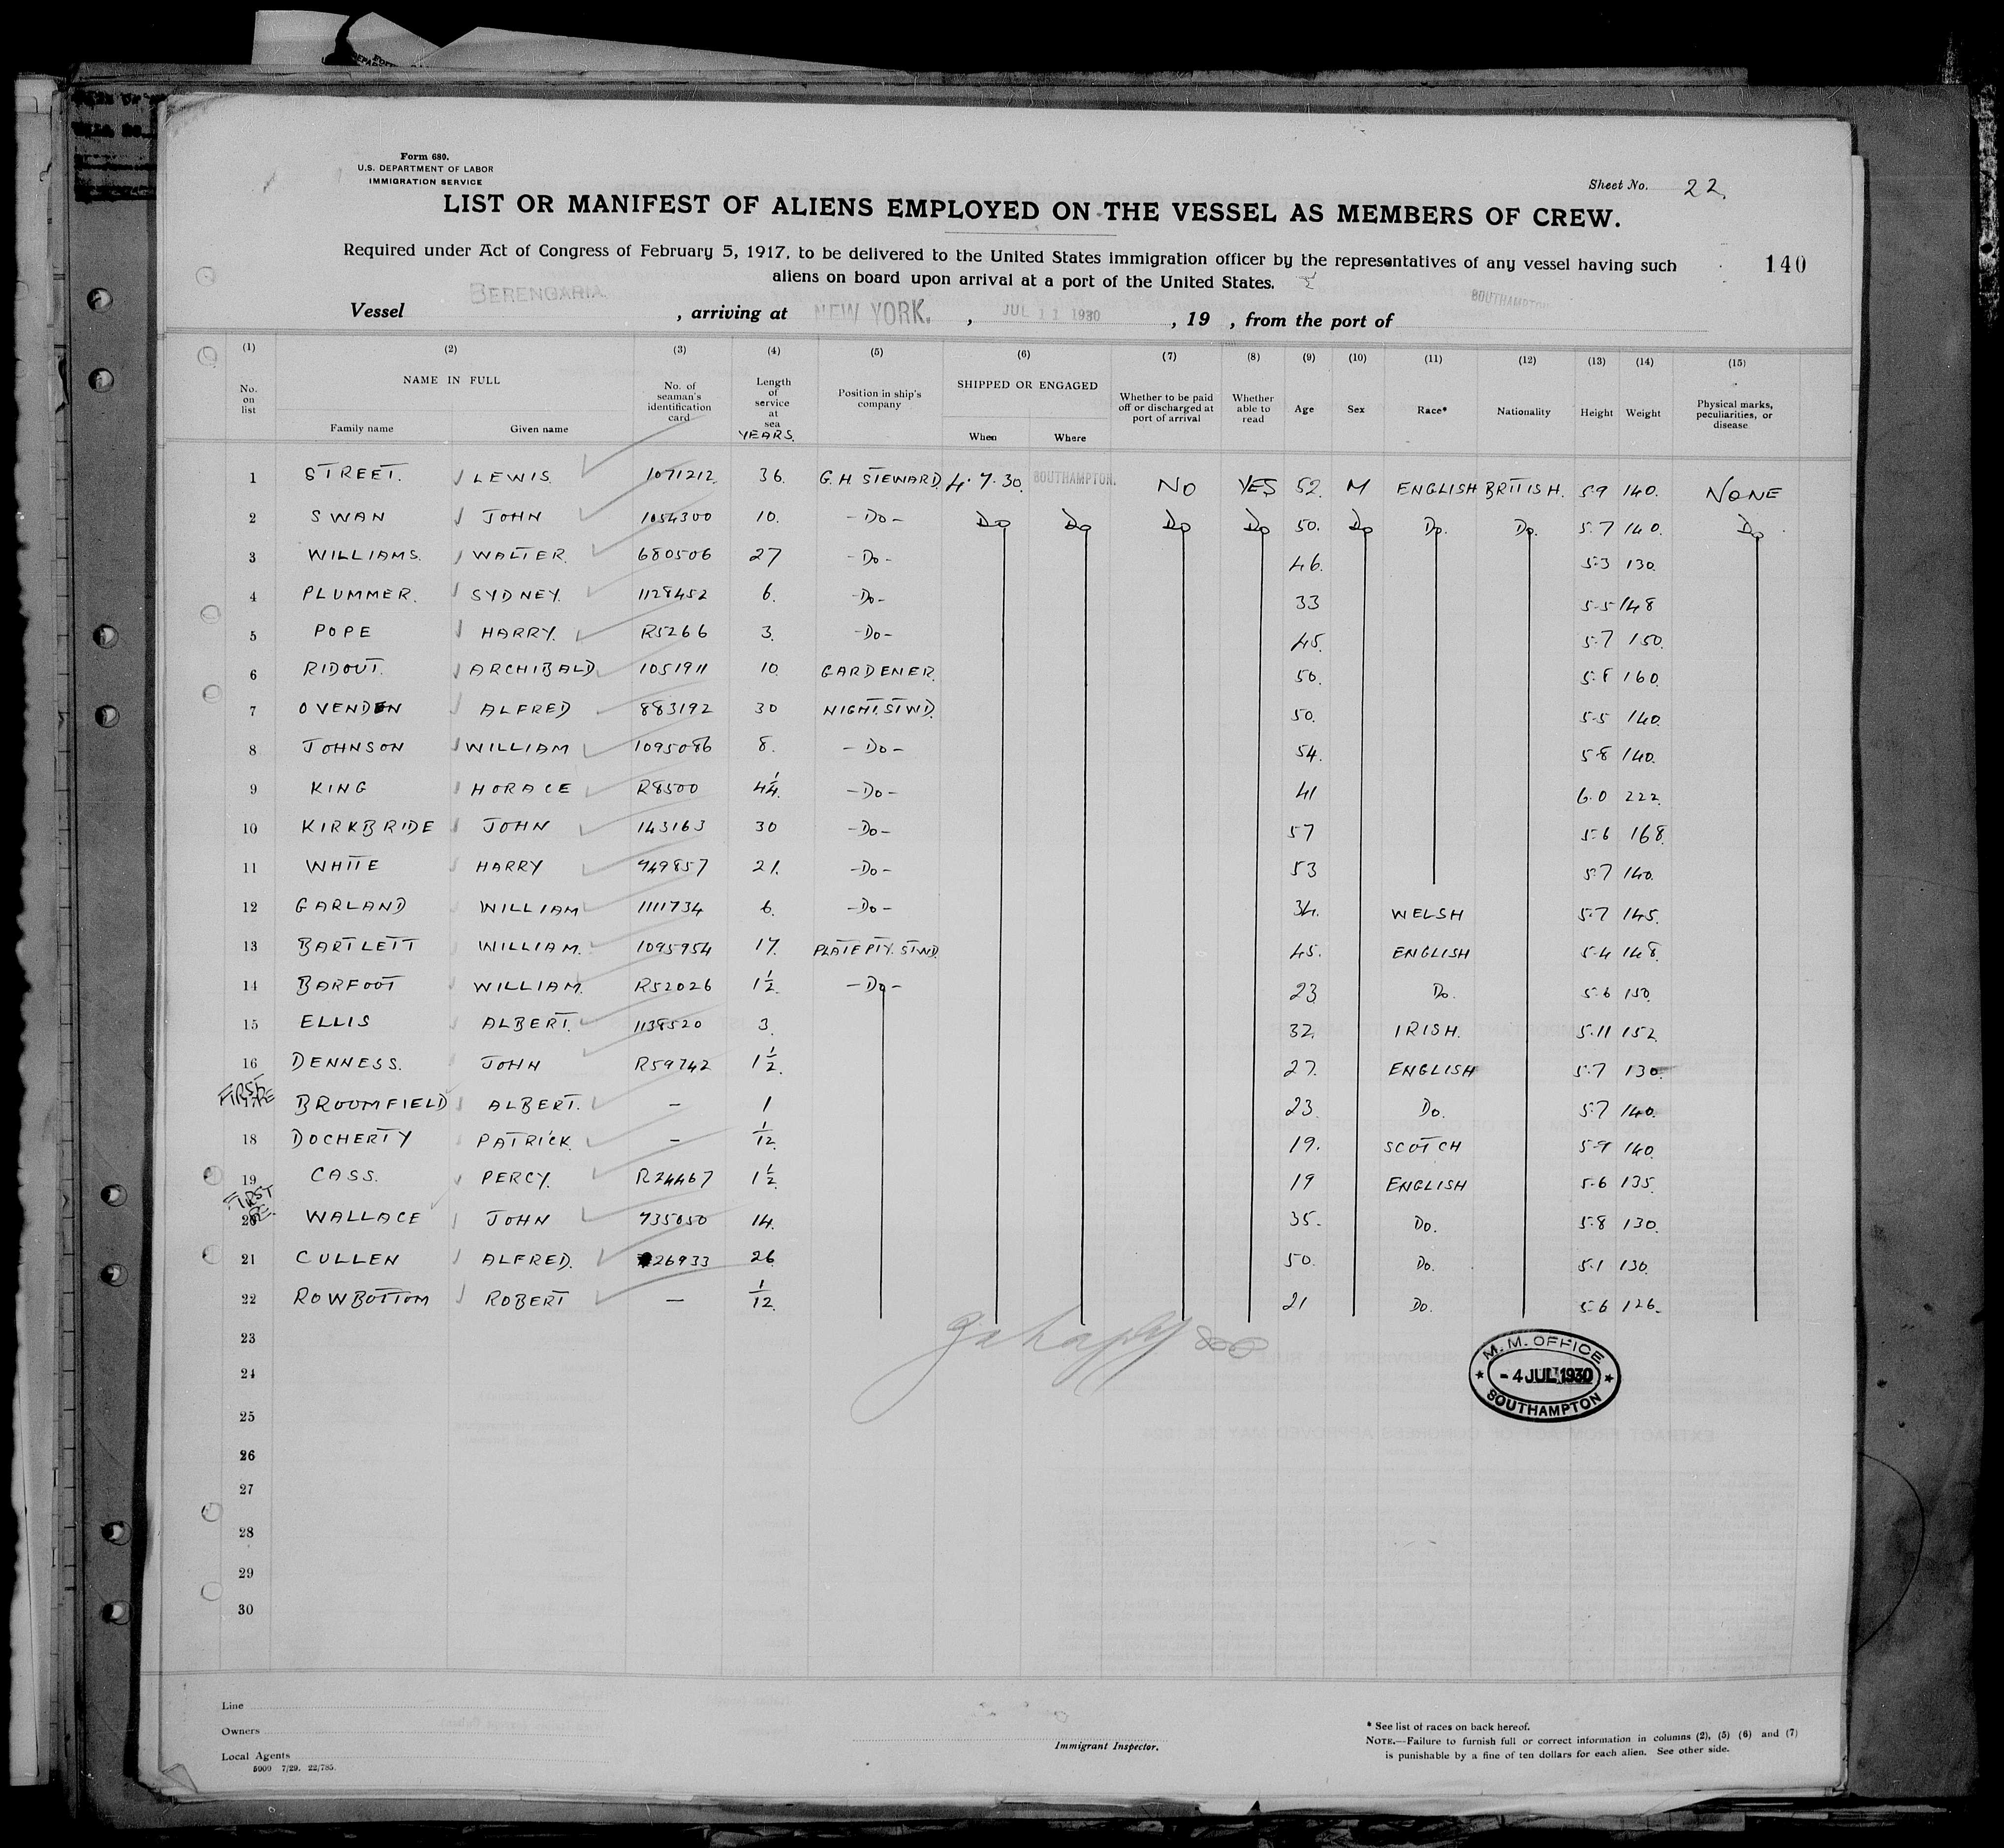 Form 680.
U.S. DEPARTMENT OF LABOR
IMMIGRATION SERVICE
Sheet No. 22.
LIST OR MANIFEST OF ALIENS EMPLOYED ON THE VESSEL AS MEMBERS OF CREW.
Required under Act of Congress of February 5, 1917, to be delivered to the United States immigration officer by the representatives of any vessel having such
aliens on board upon arrival at a port of the United States.
140
Vessel BERENGARIA, arriving at NEW YORK., JUL 11 1930, 19 , from the port of SOUTHAMPTON
(1) (2) (3) (4) (5) (6) (7) (8) (9) (10) (11) (12) (13) (14) (15)
No. on list NAME IN FULL Family name Given name No. of seaman's identification card Length of service at sea YEARS. Position in ship's company SHIPPED OR ENGAGED When Where Whether to be paid off or discharged at port of arrival Whether able to read Age Sex Race* Nationality Height Weight Physical marks, peculiarities, or disease
1 STREET. LEWIS 1071212 36. G.H. STEWARD. 4.7.30. SOUTHAMPTON. NO YES 52. M ENGLISH BRITISH. 5.9 140. NONE
2 SWAN JOHN 1054300 10. -Do- Do Do Do Do 50. Do Do. Do. 5.7 140. Do
3 WILLIAMS. WALTER. 680506 27 -Do- 46. 5.3 130.
4 PLUMMER. SYDNEY. 1128452 6. -Do- 33 5.5 148
5 POPE HARRY. R5266 3. -Do- 45. 5.7 150.
6 RIDOUT. ARCHIBALD. 1051911 10 GARDENER. 50. 5.8 160.
7 OVENDEN ALFRED 883192 30 NIGHT.STWD. 50. 5.5 140.
8 JOHNSON WILLIAM 1095086 8. -Do- 54. 5.8 140.
9 KING HORACE R8500 4¼. -Do- 41 6.0 222.
10 KIRKBRIDE JOHN 143163 30 -Do- 57 5.6 168.
11 WHITE HARRY 949857 21. -Do- 53 5.7 140.
12 GARLAND WILLIAM 1111734 6. -Do- 34. WELSH 5.7 145.
13 BARTLETT WILLIAM. 1095954 17. PLATE PTY. STWD. 45. ENGLISH 5.4 148.
14 BARFOOT WILLIAM. R52026 1½. -Do- 23 Do. 5.6 150.
15 ELLIS ALBERT. 1138520 3. 32. IRISH. 5.11 152.
16 DENNESS. JOHN R59742 1½. 27. ENGLISH 5.7 130.
FIRST TIME BROOMFIELD ALBERT. - 1 23. Do. 5.7 140.
18 DOCHERTY PATRICK. - 1/12. 19. SCOTCH 5.9 140.
19 CASS. PERCY. R24467 1½. 19 ENGLISH 5.6 135.
FIRST
20 WALLACE JOHN 735050 14. 35. Do. 5.8 130.
21 CULLEN ALFRED. 26933 26. 50. Do. 5.1 130.
22 ROWBOTTOM ROBERT - 1/12. 21 Do. 5.6 126.
23
24
25
26
27
28
29
30
M.M. OFFICE
- 4 JUL 1930
SOUTHAMPTON
Line
Owners
Local Agents
5909 7/29. 22/785.
Immigrant Inspector.
* See list of races on back hereof.
NOTE.—Failure to furnish full or correct information in columns (2), (5) (6) and (7)
is punishable by a fine of ten dollars for each alien. See other side.